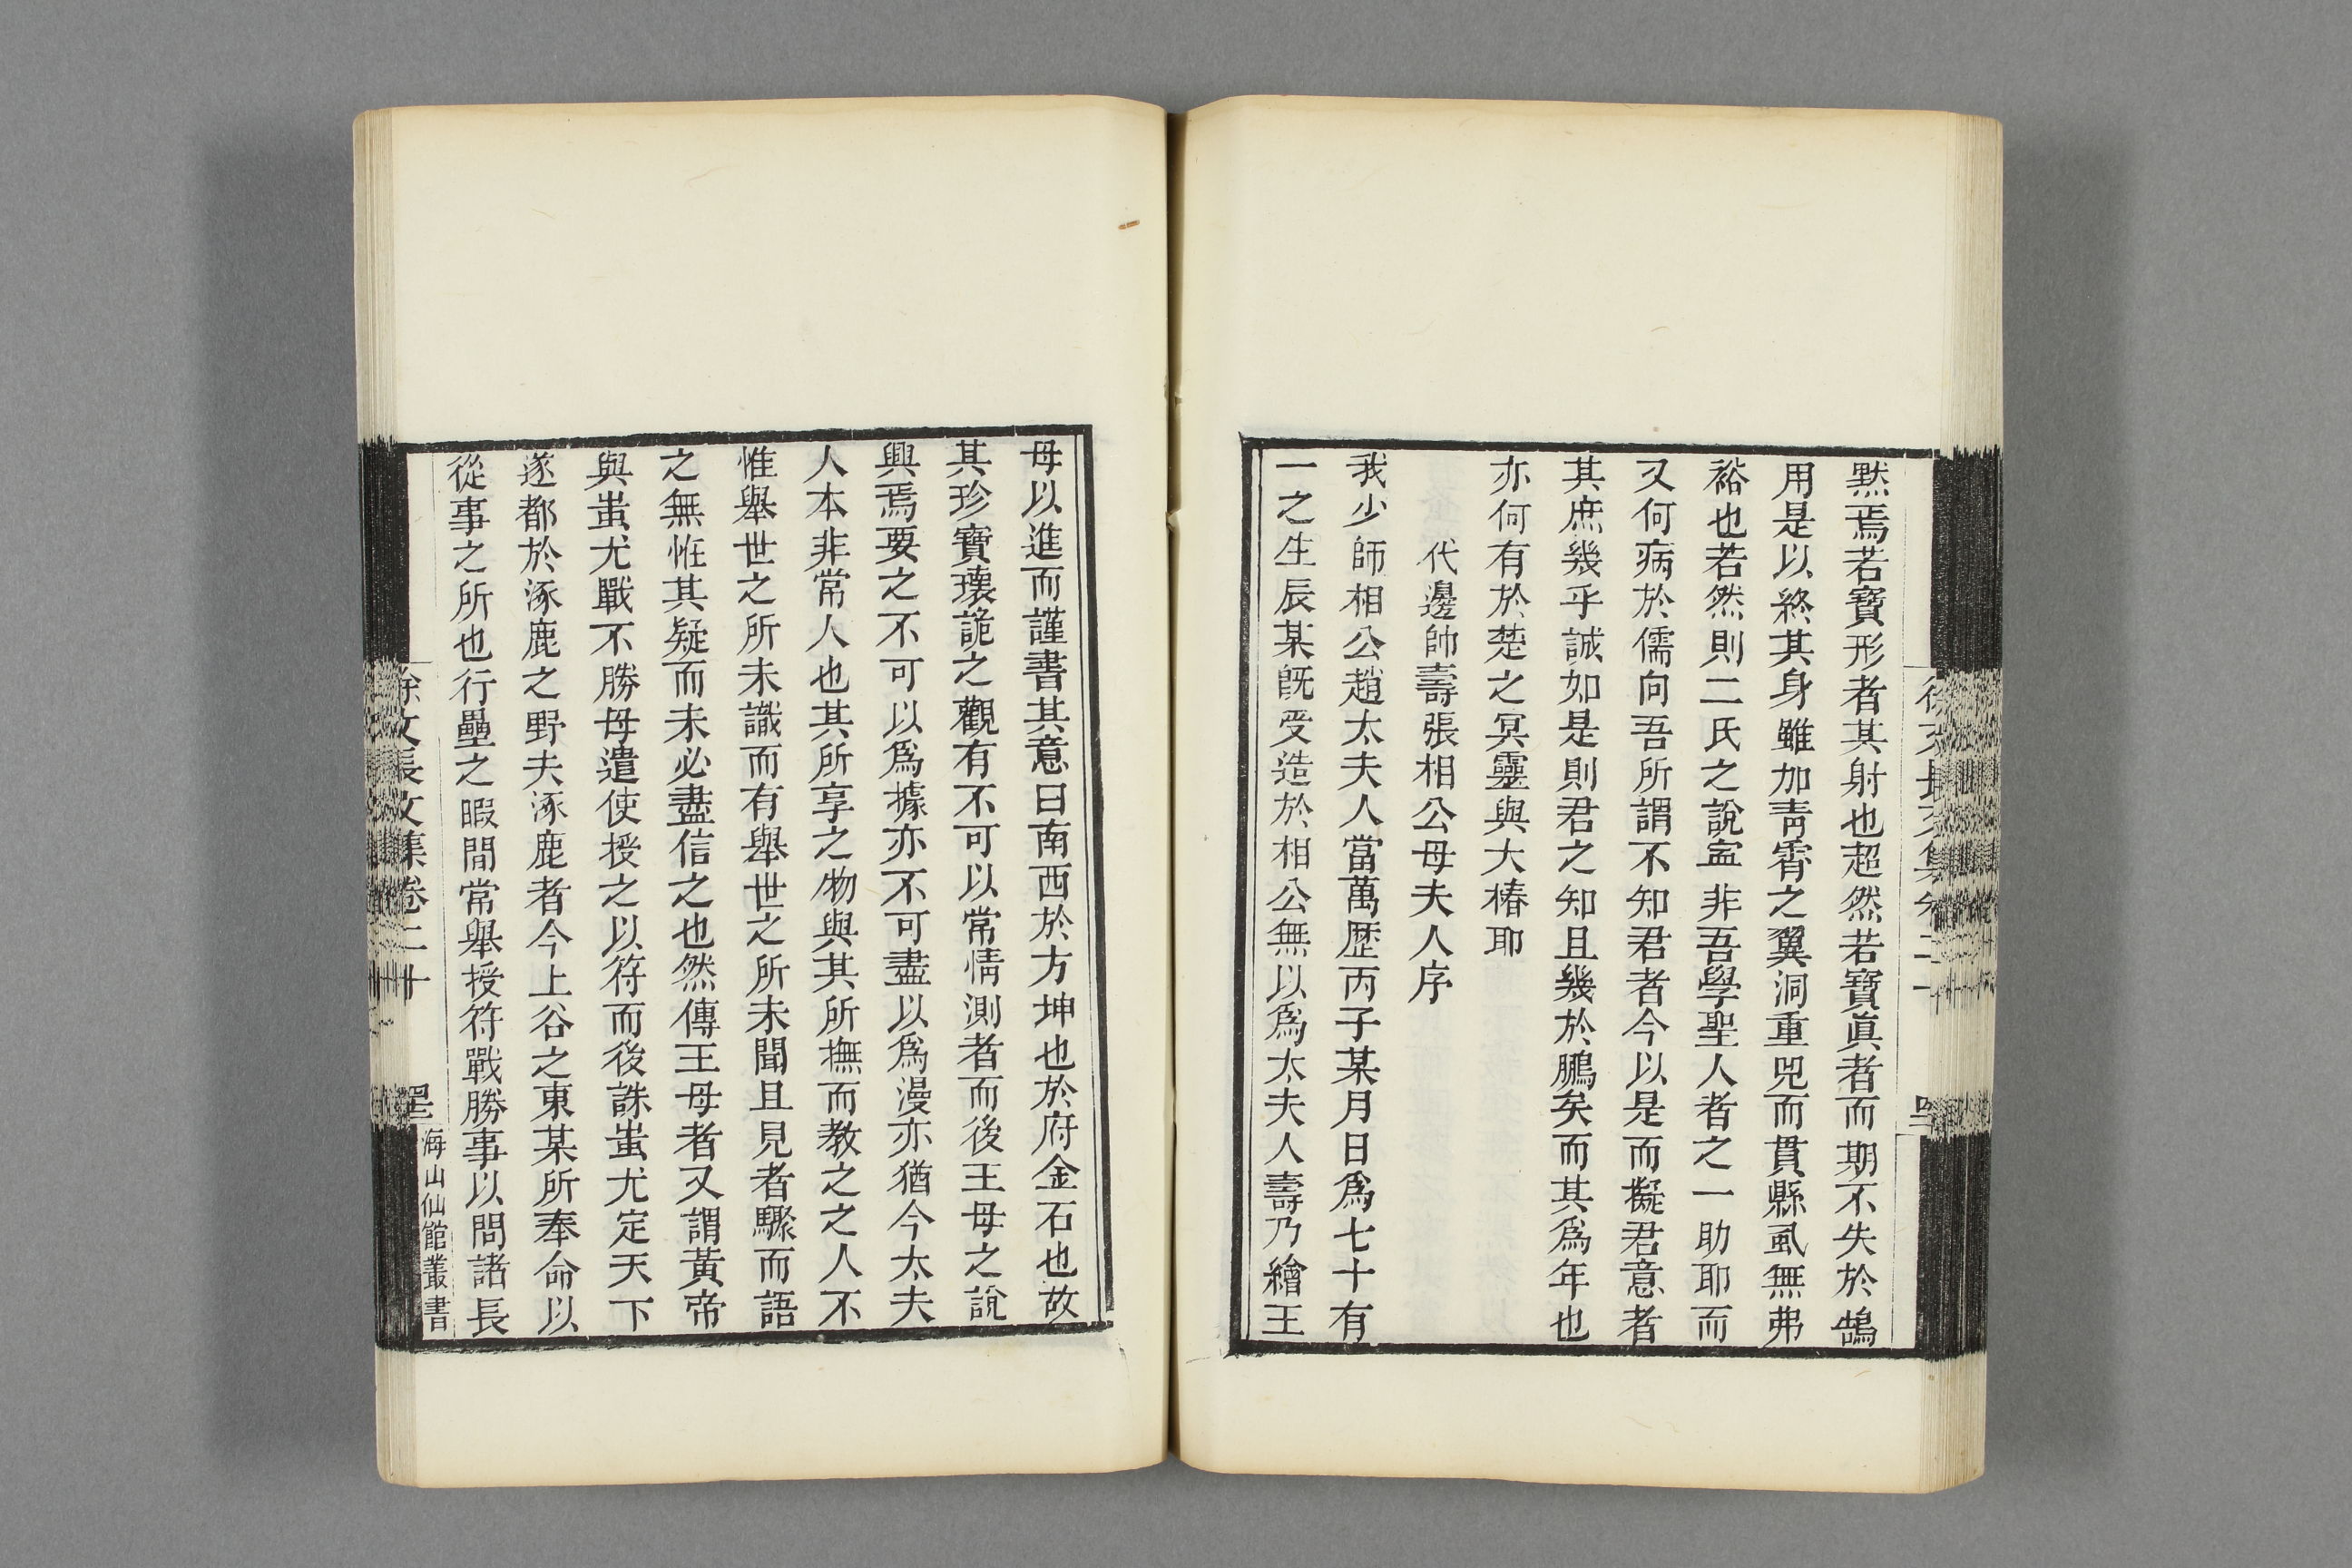 黙焉若寶形者其射也超然若寶眞者而期不失於鵠
用是以終其身雖加靑霄之翼洞重兕而貫縣虱無弗
裕也若然則二氏之說寍非吾學聖人者之一助耶而
又何病於儒向吾所謂不知君者今以是而擬君意者
其庶幾乎誠如是則君之知且幾於鵬矣而其爲年也
亦何有於楚之冥靈與大椿耶
代邊帥壽張相公母夫人序
我少師相公趙太夫人當萬歷丙子某月日爲七十有
一之生辰某旣受造於相公無以爲太夫人壽乃繪王
母以進而謹書其意曰南西於方坤也於府金石也故
其珍寶瓌詭之觀有不可以常情測者而後王母之說
興焉要之不可以爲據亦不可盡以爲漫亦猶今太夫
人本非常人也其所享之物與其所撫而教之之人不
惟舉世之所未識而有舉世之所未聞且見者驟而語
之無惟其疑而未必盡信之也然傳王母者又謂黃帝
與蚩尤戰不勝母遣使授之以符而後誅蚩尤定天下
遂都於涿鹿之野夫涿鹿者今上谷之東某所奉命以
從事之所也行壘之暇間常舉授符戰勝事以問諸長
徐文長文集卷二十
海山仙館叢書